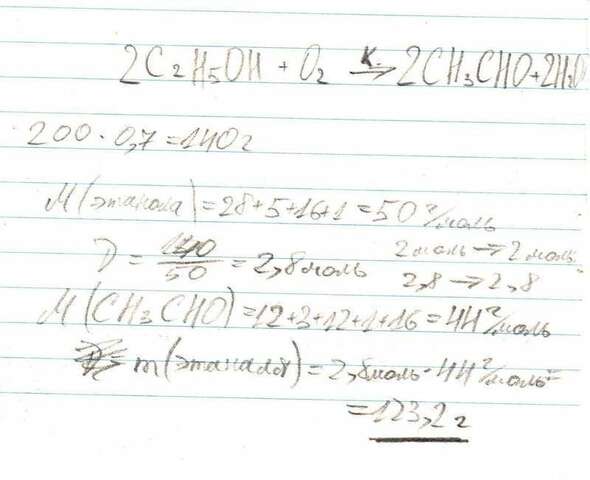 2C₂H₅OH + O₂ →К. 2CH₃CHO+2H₂O
200 · 0,7 = 140г
M(этанола) = 28+5+16+1 = 50 г/моль
ν = 140/50 = 2,8 моль 2 моль → 2 моль
2,8 → 2,8
M(CH₃CHO) = 12+3+12+1+16 = 44 г/моль
m(этаналя) = 2,8моль · 44 г/моль =
= 123,2 г